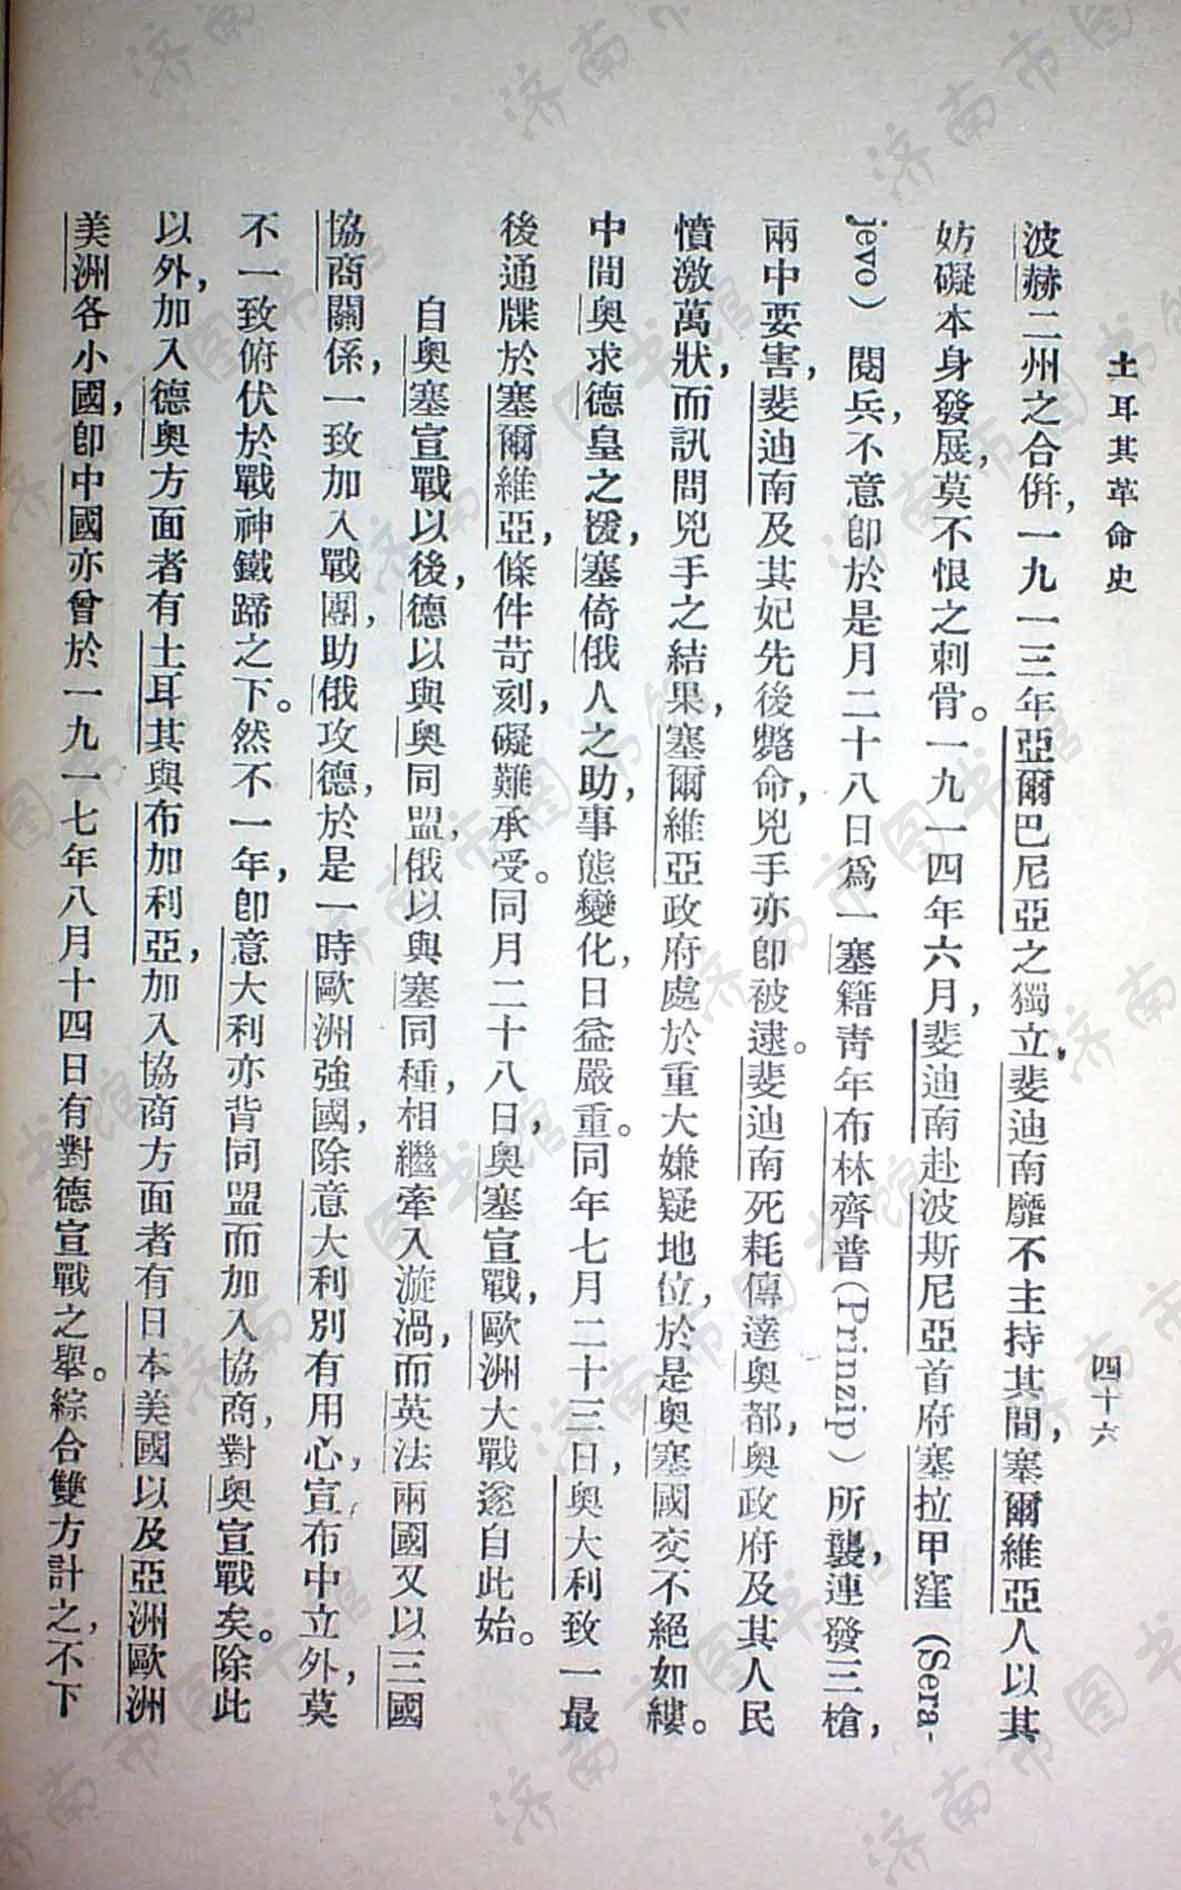 土耳其革命史
四十六
波赫二州之合併，一九一三年亞爾巴尼亞之獨立，斐迪南靡不主持其間，塞爾維亞人以其
妨礙本身發展，莫不恨之刺骨。一九一四年六月，斐迪南赴波斯尼亞首府塞拉甲窪（Sera-
jevo）閱兵，不意卽於是月二十八日爲一塞籍靑年布林齊普（Prinzip）所襲，連發三槍，
兩中要害，斐迪南及其妃先後斃命，兇手亦卽被逮。斐迪南死耗傳達奥都，奥政府及其人民
憤激萬狀，而訊問兇手之結果，塞爾維亞政府處於重大嫌疑地位，於是奥塞國交不絕如縷。
中間奥求德皇之援，塞倚俄人之助，事態變化，日益嚴重。同年七月二十三日，奥大利致一最
後通牒於塞爾維亞，條件苛刻，礙難承受。同月二十八日，奥塞宣戰，歐洲大戰遂自此始。
自奥塞宣戰以後，德以與奥同盟，俄以與塞同種，相繼牽入漩渦，而英法兩國又以三國
協商關係，一致加入戰團，助俄攻德，於是一時歐洲強國，除意大利別有用心，宣布中立外，莫
不一致俯伏於戰神鐵蹄之下。然不一年，卽意大利亦背同盟而加入協商，對奥宣戰矣。除此
以外，加入德奥方面者有土耳其與布加利亞，加入協商方面者有日本美國以及亞洲歐洲
美洲各小國，卽中國亦曾於一九一七年八月十四日有對德宣戰之舉。綜合雙方計之，不下
济南市图书馆